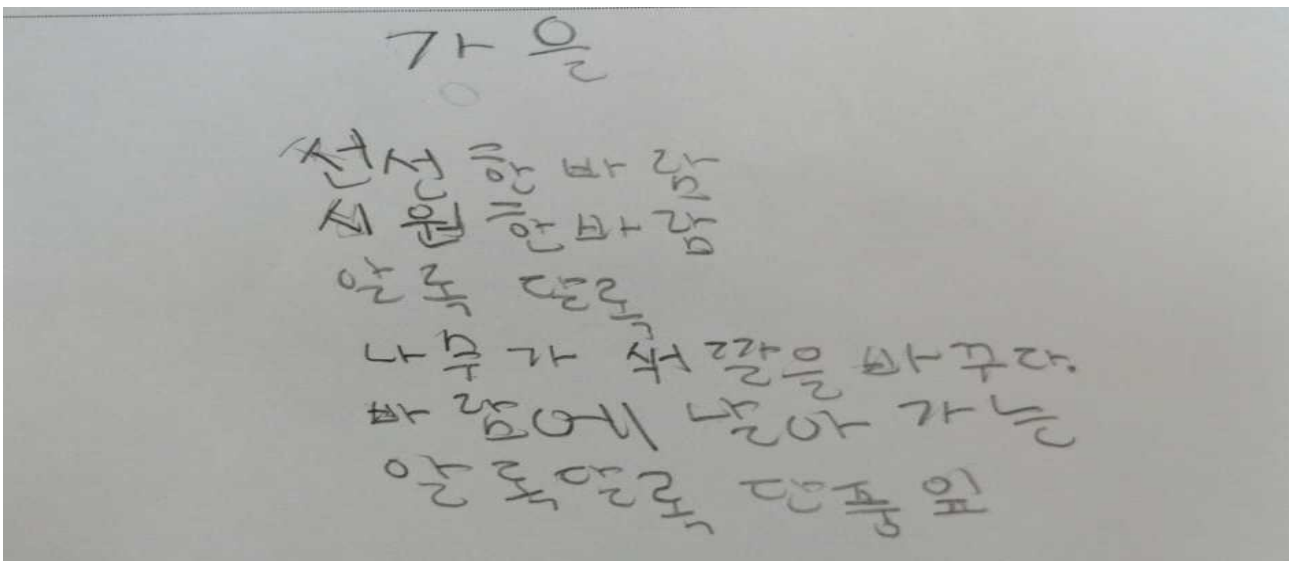 가을
선선한 바람
시원한 바람
알록 달록
나무가 색깔을 바꾸다.
바람에 날아 가는
알록달록 단풍잎